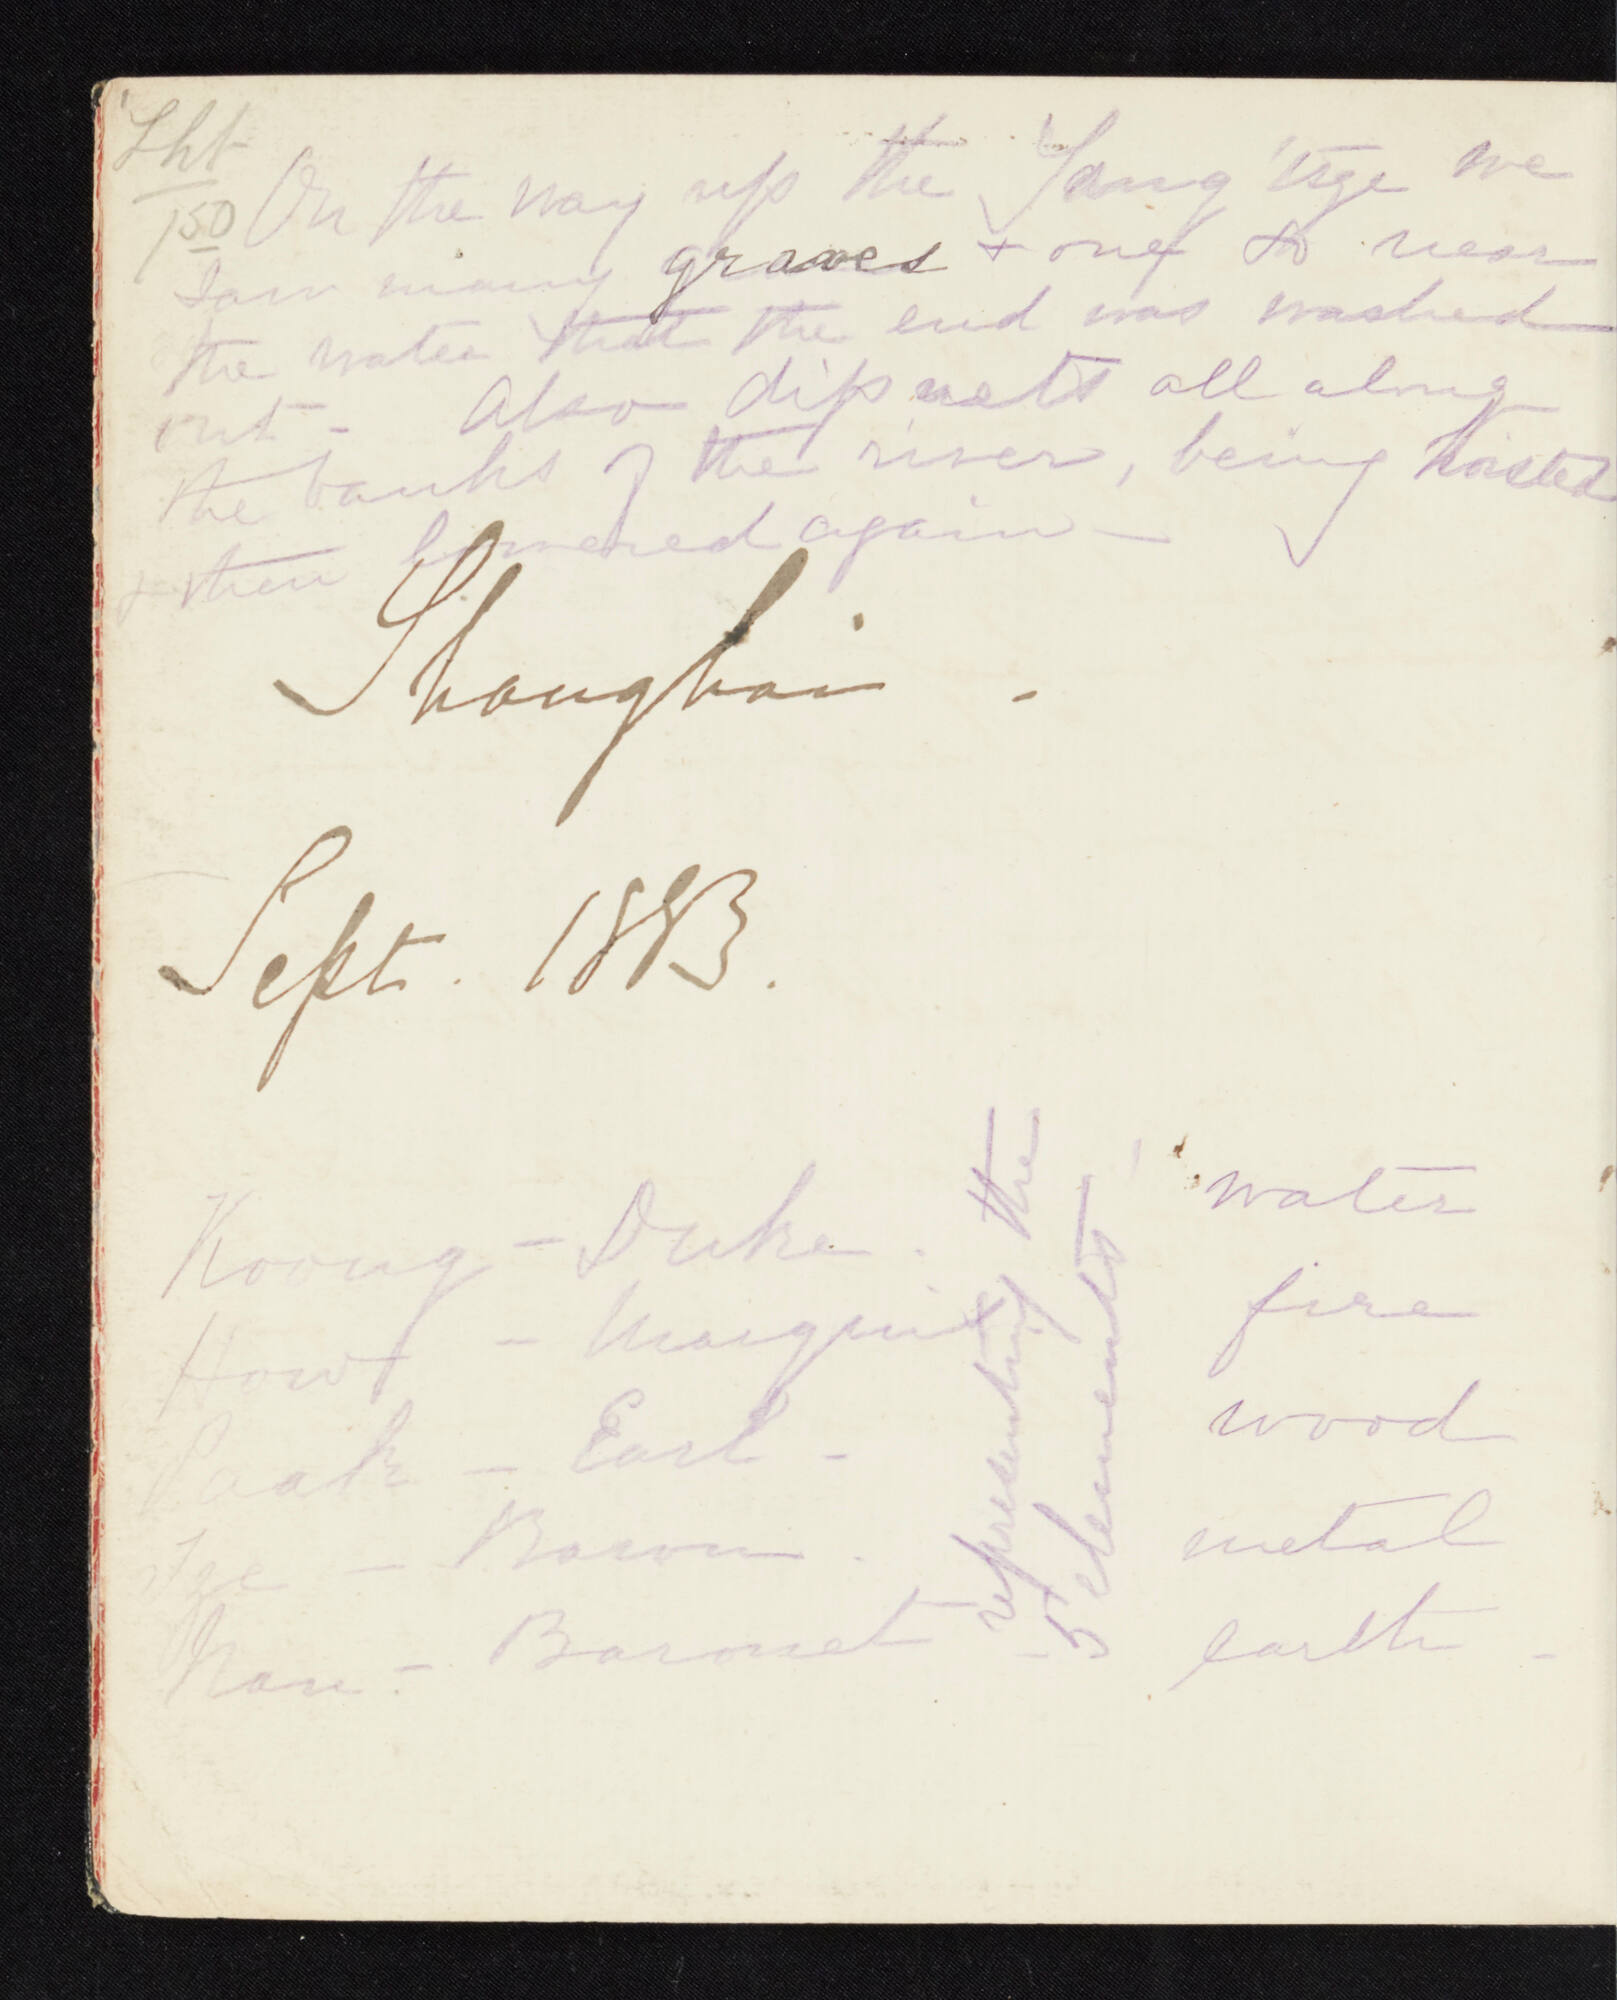 On the way up the Yang'tsze we
saw many graves + one so near
the water that the end was washed
out - Also dip nets all along
the banks of the river, being hoisted
& then lowered again -
Shanghai -
Sept. 1883.
Koong - Duke .
How - Marquis
Paak - Earl -
Tsze - Baron .
Nan - Baronet
representing the
5 elements -
water
fire
wood
metal
earth -